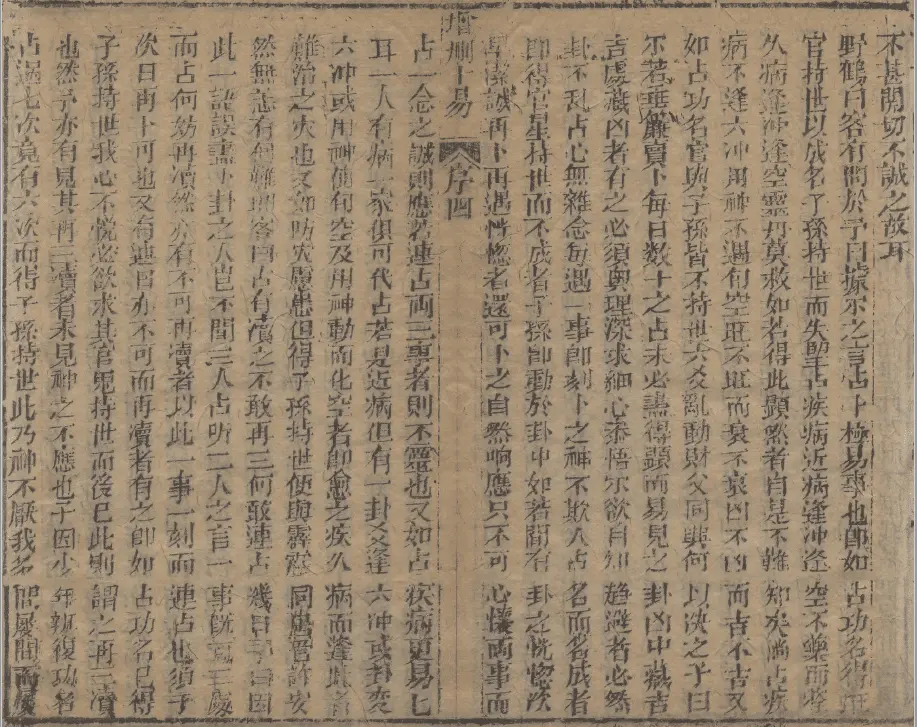 不甚關切不誠之故耳
野鶴曰客有問於予曰據尔之言占卜極易事也即如占功名得旺
官持世以成名子孫持世而失望占疾病近病逢冲逢空不藥而痊
久病逢冲逢空靈丹莫救如若得此顯然者自是不難知矣倘占疾
病不逢六冲用神不遇旬空旺不旺而衰不衰凶不凶而吉不吉又
如占功名官與子孫皆不持世六爻亂動財父同興何以决之予曰
不若垂簾賣卜每日数十之占未必盡得顯而易見之卦凶中藏吉
吉處藏凶者有之必須奧理深求細心叅悟尔欲自知趋避者必然
卦不乱占心無雜念每遇一事即刻卜之神不欺人占名而名成者
即得官星持世而不成者子孫即動於卦中如若間有卦之恍惚次
早潔誠再卜再遇恍惚者還可卜之自然响應只不可心懷兩事而
增刪卜易 序四
占一念之誠則應若連占両三事者則不靈也又如占疾病更易七
耳一人有病一家俱可代占若是近病但有一卦又逢六冲或卦变
六冲或用神值旬空及用神動而化空者即愈之疾久病而逢此者
難治之灾也又如防灾慮患但得子孫持世便與霹靂同居管許安
然無恙有何難明客曰占有瀆之不敢再三何敢連占幾日予曰因
此一語誤盡卜卦之人豈不聞三人占听二人之言一事旣可三處
而占何妨再瀆然亦有不可再瀆者以此一事一刻而連占也須子
次日再卜可也又有連日亦不可而再瀆者有之即如占功名已得
子孫持世我心不悦必欲求其官鬼持世而後已此則謂之再三瀆
也然予亦有見其再三瀆者未見神之不應也予因少年執復功名
占過七次竟有六次而得子孫持世此乃神不厭我多問屢問而屢